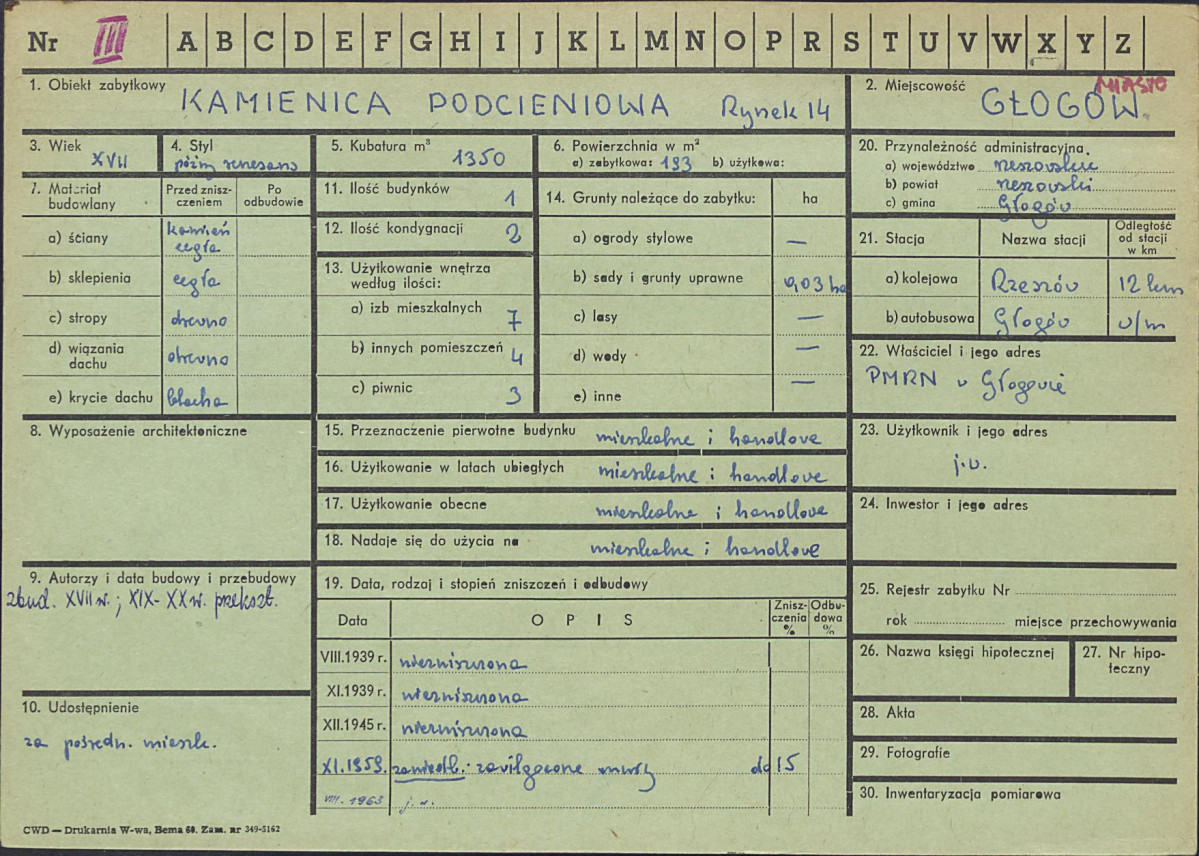 Nr III A B C D E F G H I J K L M N O P R S T U V W X Y Z
1. Obiekt zabytkowy
KAMIENICA PODCIENIOWA Rynek 14
2. Miejscowość MIASTO
GŁOGÓW.
3. Wiek
XVII
4. Styl
późny renesans
5. Kubatura m³
1350
6. Powierzchnia w m²
a) zabytkowa: 193 b) użytkowa:
20. Przynależność administracyjna
a) województwo rzeszowskie
b) powiat rzeszowski
c) gmina Głogów
7. Materiał budowlany
Przed znisz-
czeniem
Po
odbudowie
a) ściany kamień
cegła
b) sklepienia cegła
c) stropy drewno
d) wiązania
dachu drewno
e) krycie dachu blacha
11. Ilość budynków 1
12. Ilość kondygnacji 2
13. Użytkowanie wnętrza
według ilości:
a) izb mieszkalnych 7
b) innych pomieszczeń 4
c) piwnic 3
14. Grunty należące do zabytku: ha
a) ogrody stylowe —
b) sady i grunty uprawne 0,03 ha
c) lasy —
d) wody —
e) inne —
21. Stacja Nazwa stacji
Odległość
od stacji
w km
a) kolejowa Rzeszów 12 km
b) autobusowa Głogów w/m
22. Właściciel i jego adres
PMRN w Głogowie
8. Wyposażenie architektoniczne
15. Przeznaczenie pierwotne budynku mieszkalne i handlowe
16. Użytkowanie w latach ubiegłych mieszkalne i handlowe
17. Użytkowanie obecne mieszkalne i handlowe
18. Nadaje się do użycia na mieszkalne i handlowe
23. Użytkownik i jego adres
j.w.
24. Inwestor i jego adres
9. Autorzy i data budowy i przebudowy
zbud. XVII w.; XIX-XX w. przekszt.
10. Udostępnienie
za pośredn. mieszk.
19. Data, rodzaj i stopień zniszczeń i odbudowy
Data OPIS
Znisz-
czenia
%
Odbu-
dowa
%
VIII.1939 r. niezniszczona
XI.1939 r. niezniszczona
XII.1945 r. niezniszczona
XI.1959. zaniedb.: zawilgocone mury do 15
VIII. 1963 j.w.
25. Rejestr zabytku Nr
rok miejsce przechowywania
26. Nazwa księgi hipotecznej
27. Nr hipo-
teczny
28. Akta
29. Fotografie
30. Inwentaryzacja pomiarowa
CWD — Drukarnia W-wa, Bema 60. Zam. nr 349-5162